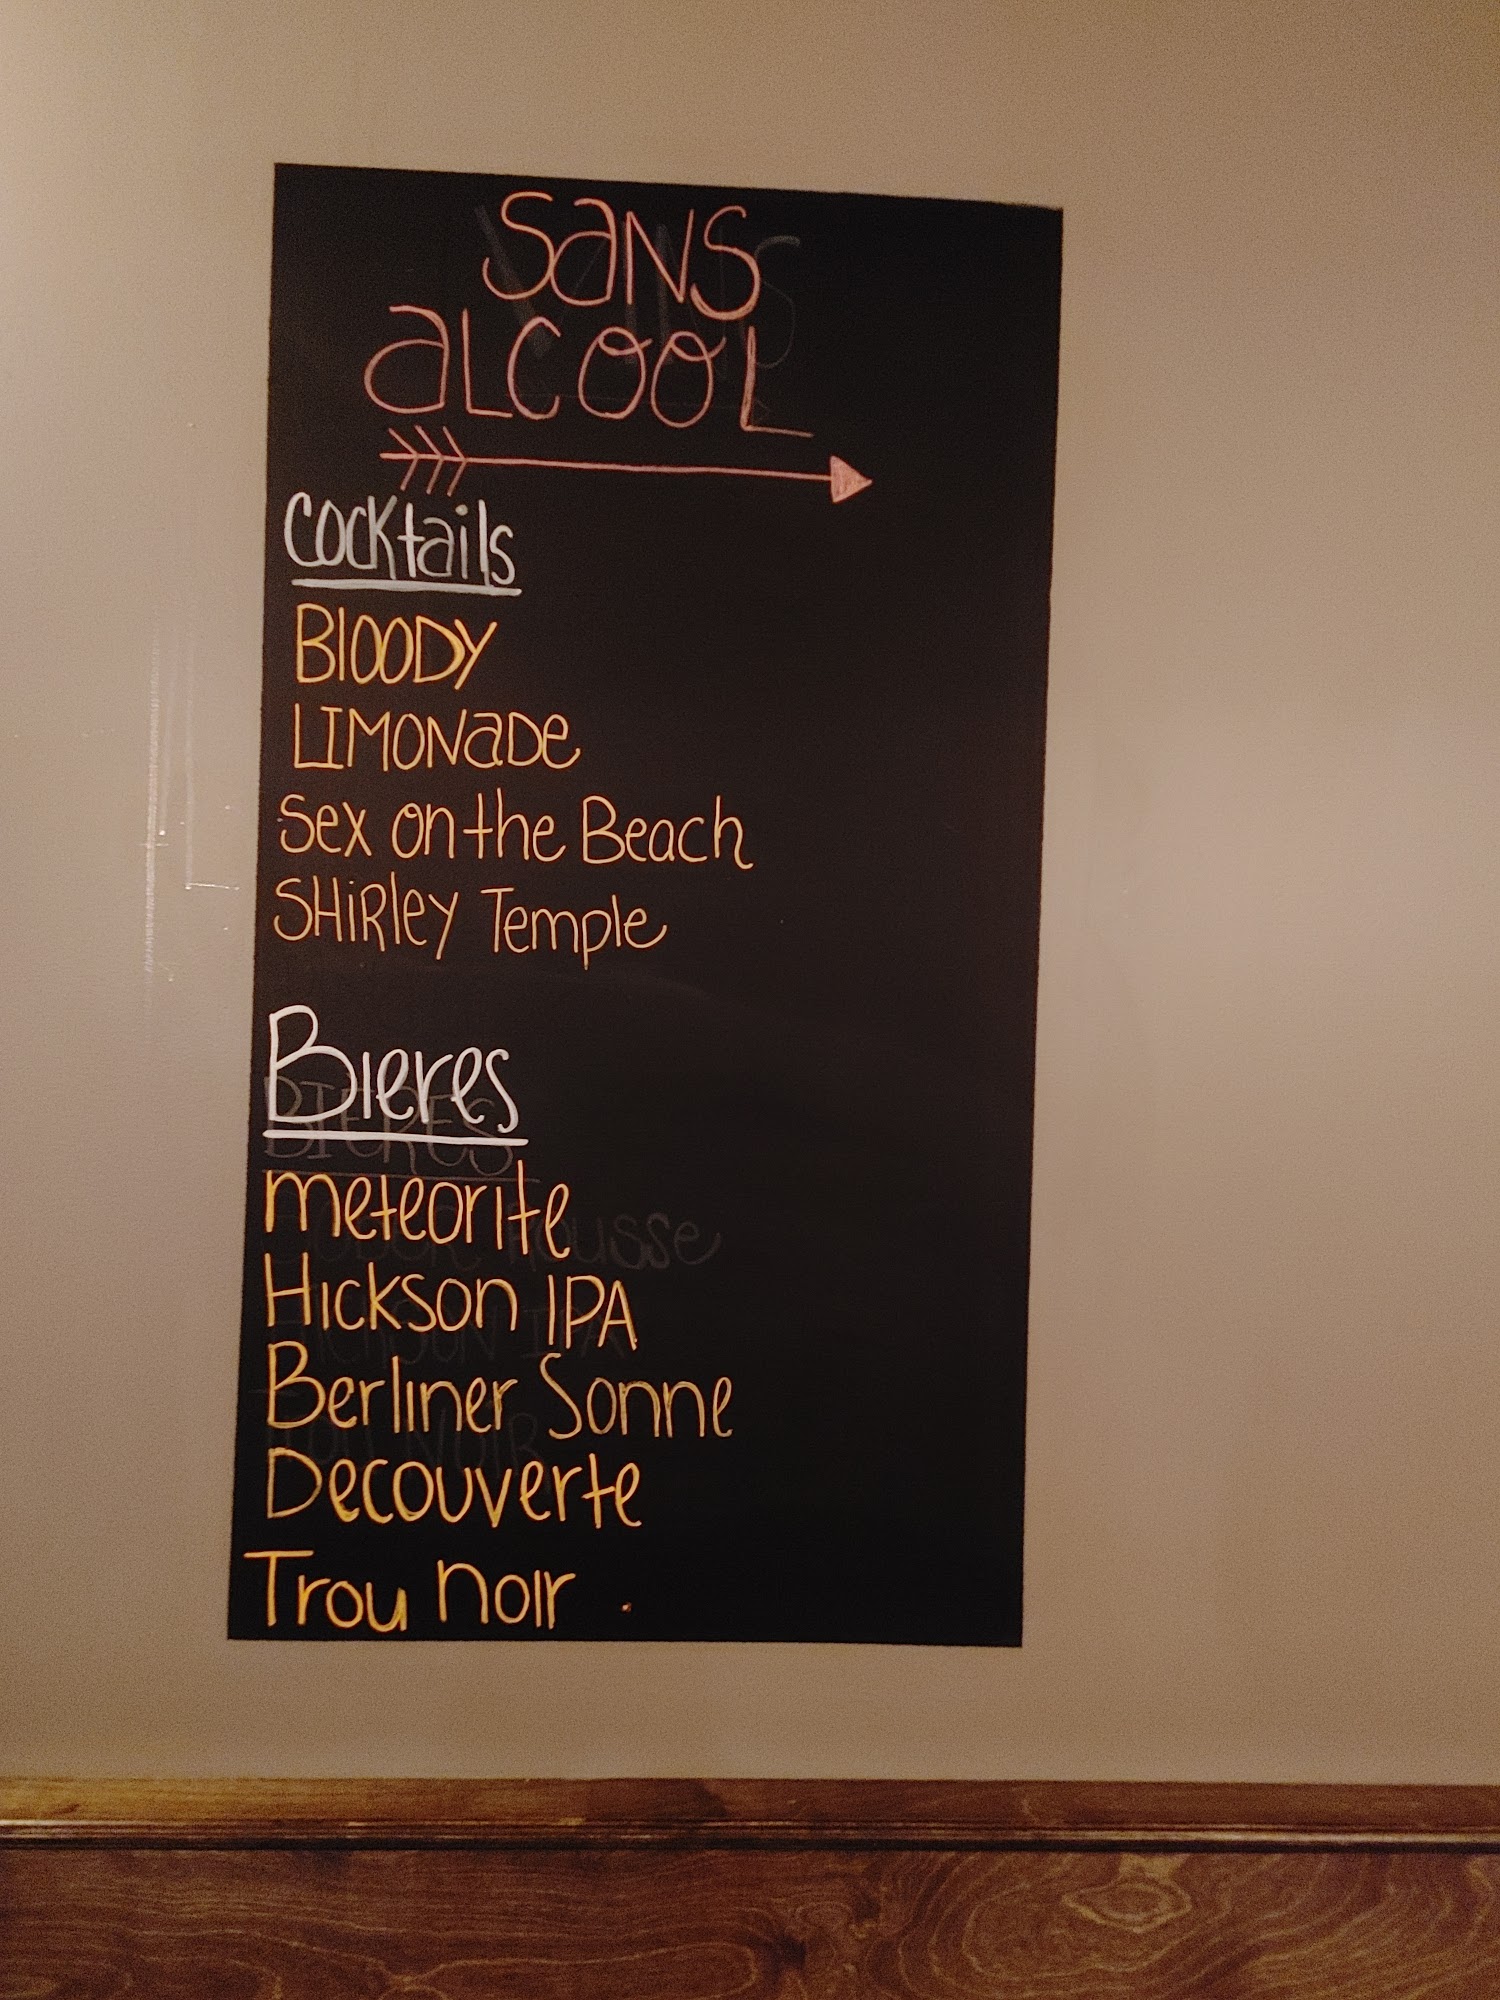 SaNS
aLCOOL
Cocktails
BlOODY
LIMONaDe
Sex on the Beach
SHiRleY Temple
Bieres
meteorite
Hickson IPA
Berliner Sonne
Decouverte
Trou noir